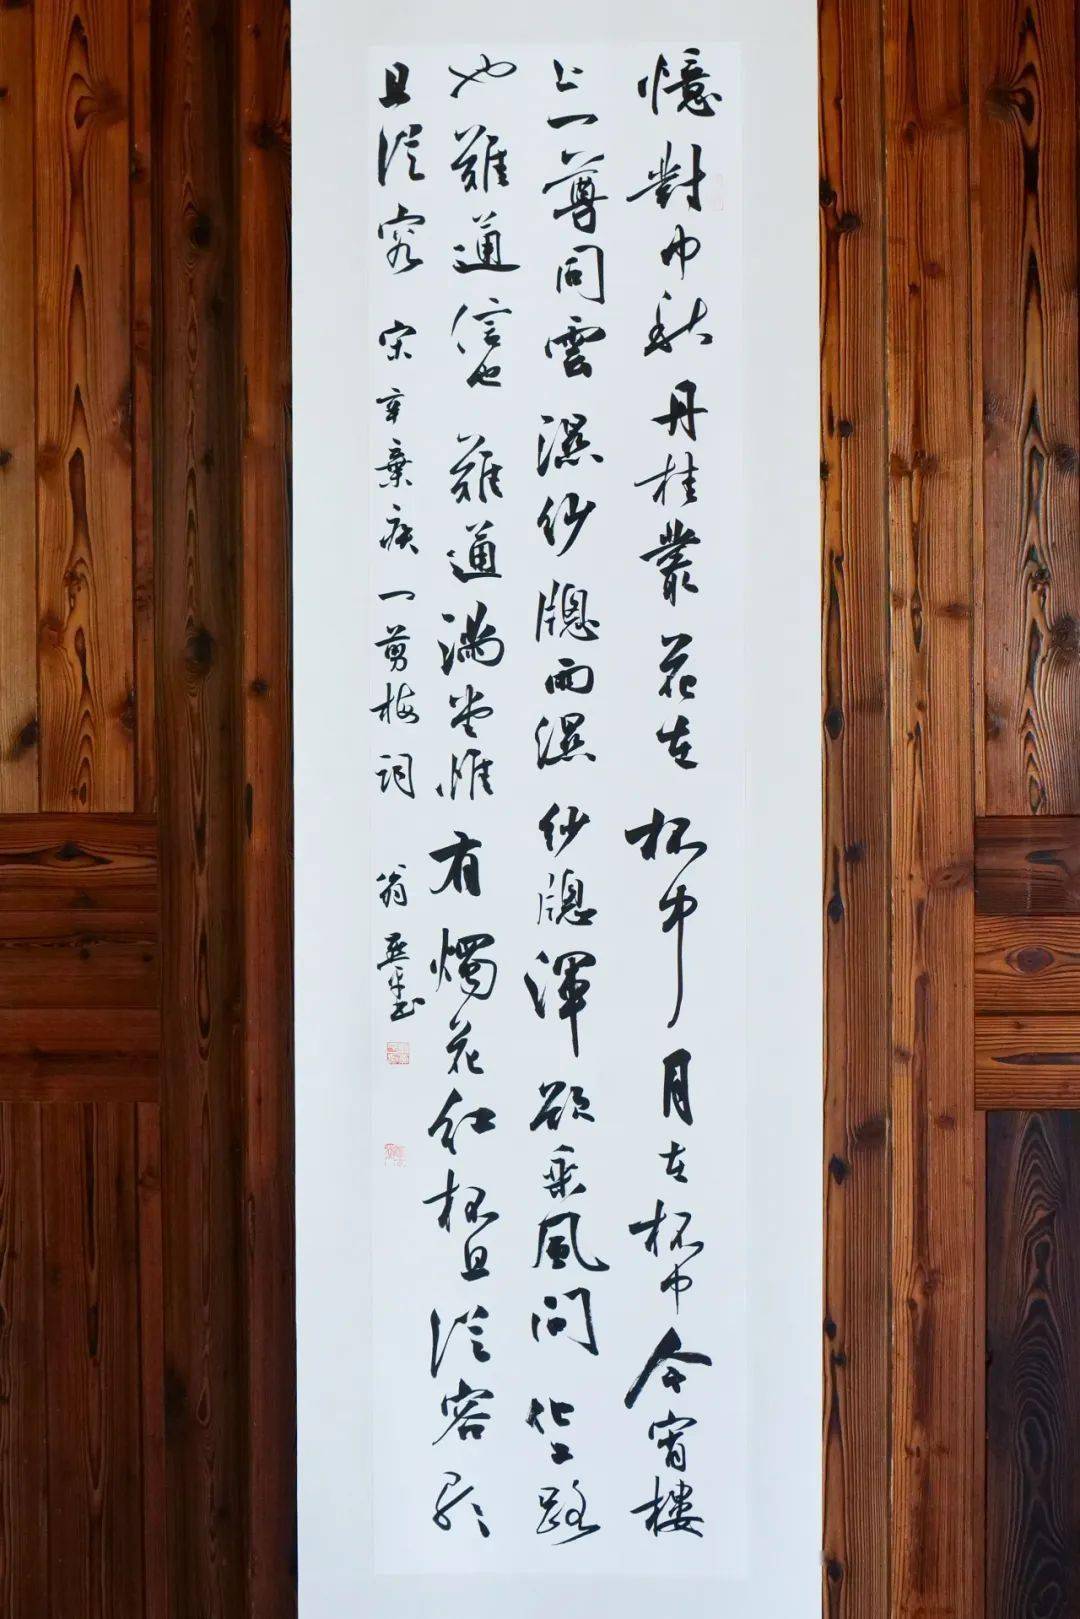 憶對中秋丹桂叢花在杯中月在杯中今宵樓
上一尊同雲濕紗牕雨濕紗牕渾欲乘風問化工路
也難通信也難通滿堂惟有燭花紅杯且從容歌
且從容 宋辛棄疾一剪梅詞 翁